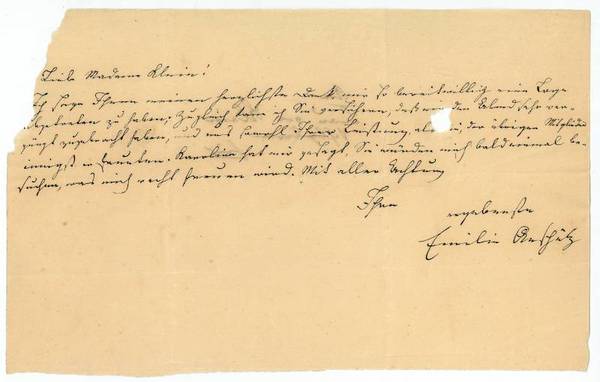 Liebe Madame Klein!
Ich sage Ihnen meinen herzlichsten Dank mir so bereitwillig eine Loge
abgetreten zu haben; Zugleich kann ich Sie versichern, daß wir den Abend sehr ver-
gnügt zugebracht haben, und uns sowohl Ihrer Leistung, als der übrigen Mitglieder
innigst erfreuten. Karoline hat mir gesagt, Sie würden mich bald einmal be-
suchen, was mich recht freuen wird. Mit aller Achtung
Ihre ergebenste
Emilie Anschütz